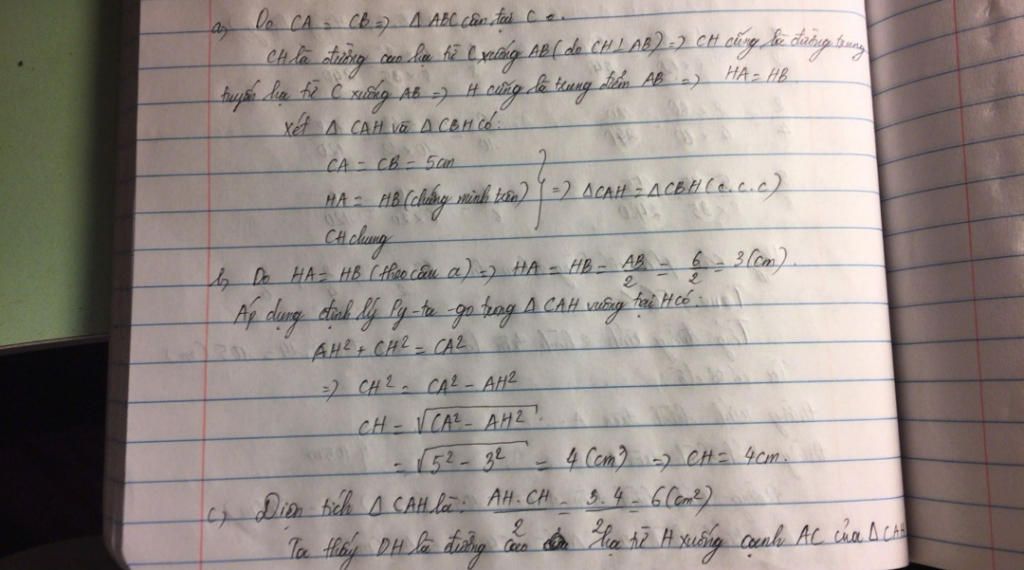 a, Do CA = CB => Δ ABC cân tại C.
CH là đường cao hạ từ C xuống AB (do CH⊥AB) => CH cũng là đường trung
tuyến hạ từ C xuống AB => H cũng là trung điểm AB => HA = HB
Xét Δ CAH và Δ CBH có:
CA = CB = 5cm
HA = HB (chứng minh trên) } => Δ CAH = Δ CBH (c.c.c)
CH chung
b, Do HA = HB (theo câu a) => HA = HB = AB/2 = 6/2 = 3 (cm).
Áp dụng định lý Py-ta-go trong Δ CAH vuông tại H có:
AH² + CH² = CA²
=> CH² = CA² - AH²
CH = √(CA² - AH²).
= √(5² - 3²) = 4 (cm) => CH = 4cm.
c, Diện tích Δ CAH là: AH.CH/2 = 3.4/2 = 6 (cm²)
Ta thấy DH là đường cao hạ từ H xuống cạnh AC của Δ CAH